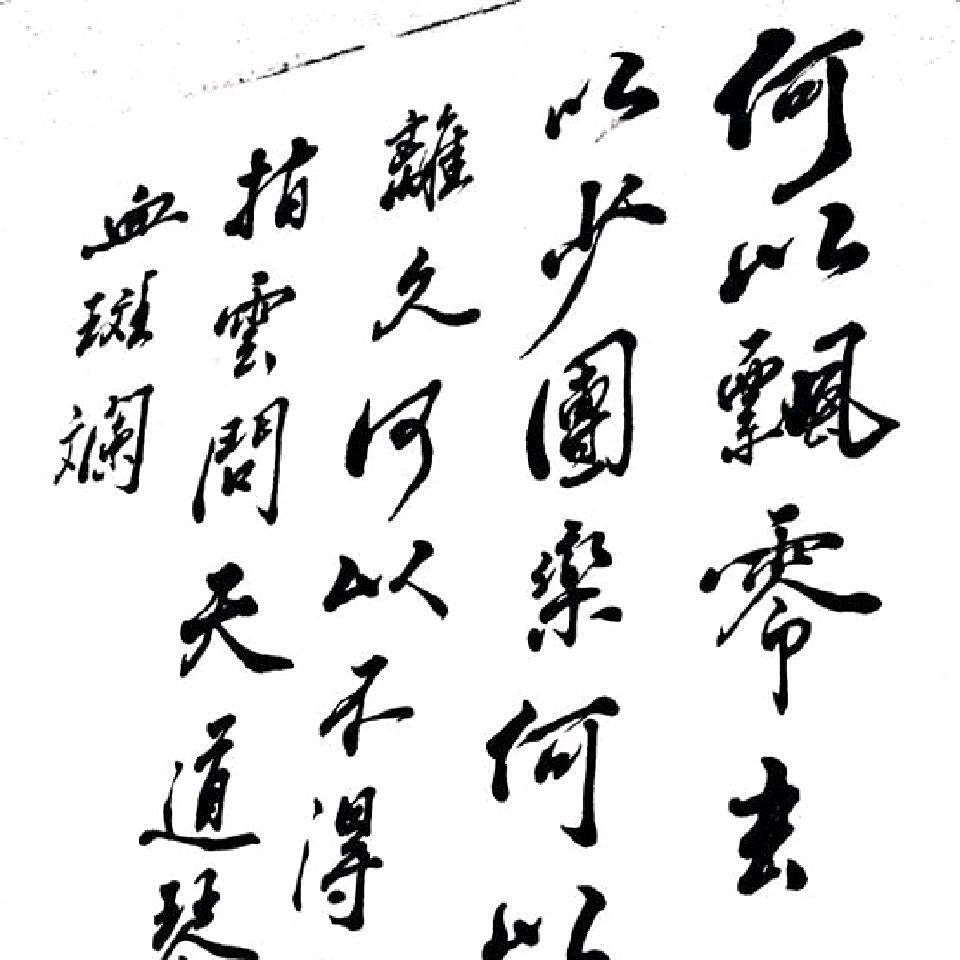 何以飄零去
以少團欒何以
離久何以不得
指雲問天道琴
血斑斕